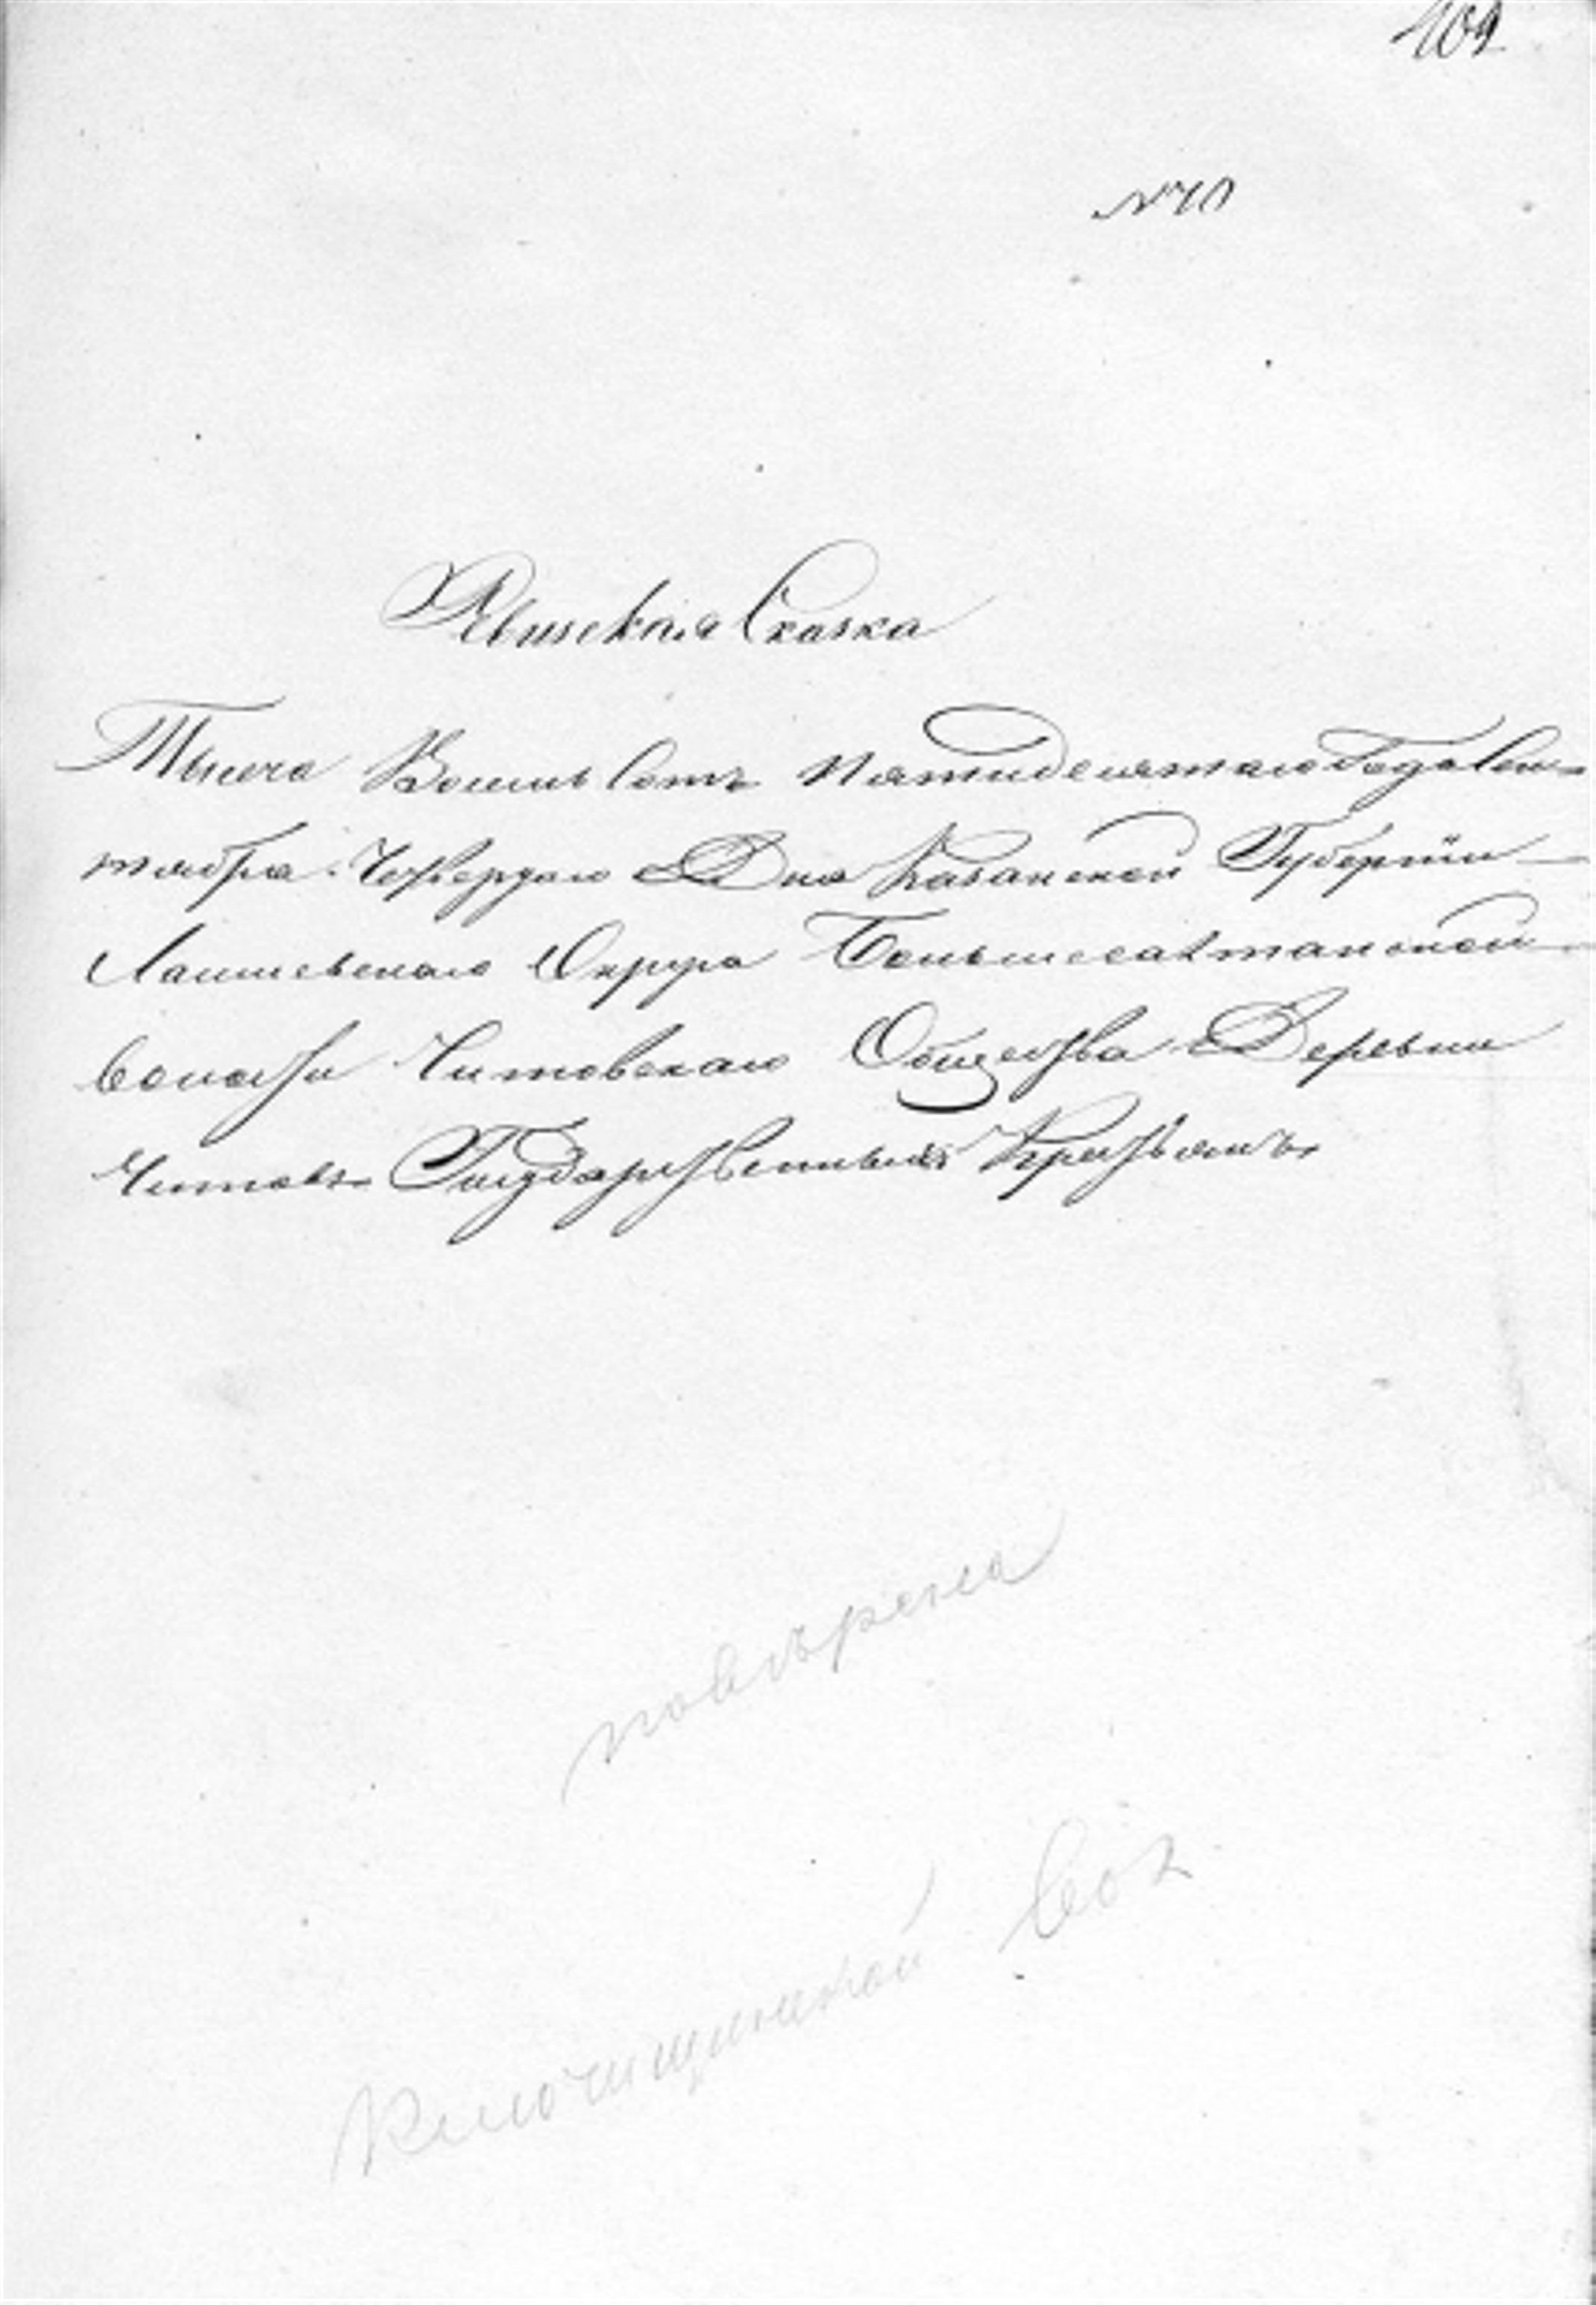 109
№ 10
Ревизская Сказка
Тысеча Восемь Сотъ Пятидесятаго Года Сен-
тября Четвертаго Дня Казанской Губернiи
Лаишевскаго Округа Большесалтанской
Волости Читовскаго Общества Деревни
Читовъ Государственныхъ Крестьянъ
повѣрена
Ключищинской Вол